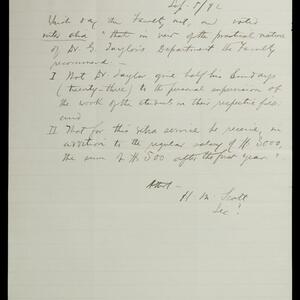 Sep. 5/92
Which day the Faculty met, and voted
"that in view of the practical nature
of Dr. G. Taylor's Department the Faculty
recommend —
I That Dr. Taylor give half his Sundays
(twenty-three) to the personal supervision of
the work of the students in their respective
and
II That for this extra service he receive, in
addition to the regular salary of $3000,
the sum of $500 after the first year."
Attest —
H. M. Scott
Sec'y